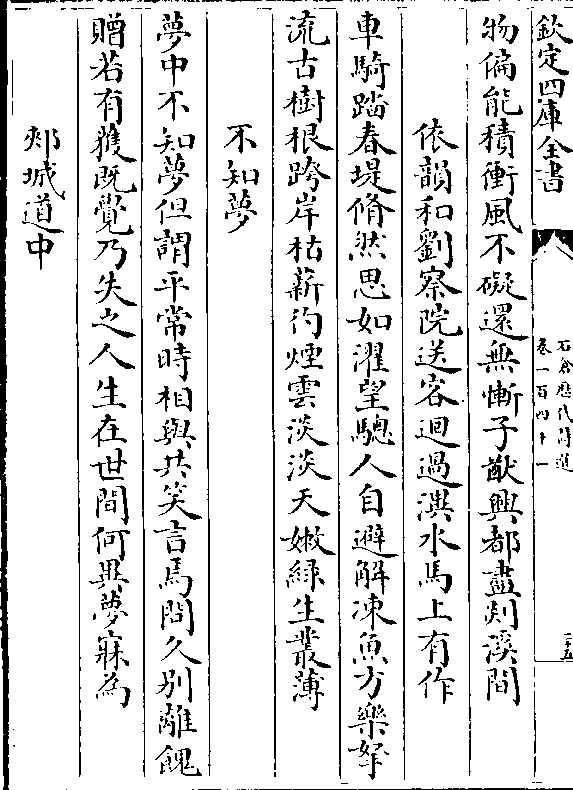 欽定四庫全書
石倉歷代詩選
卷一百四十一
物偏能積衝風不礙還無慚子猷興都盡剡溪間
依韻和劉察院送客迴過潩水馬上有作
車騎踏春堤翛然思如濯望驄人自避解凍魚方樂拏
流古樹根跨岸枯薪彴煙雲淡淡天嫩綠生叢薄
不知夢
夢中不知夢但謂平常時相與共笑言焉問久別離餽
贈若有獲既覺乃失之人生在世間何異夢寐為
郟城道中